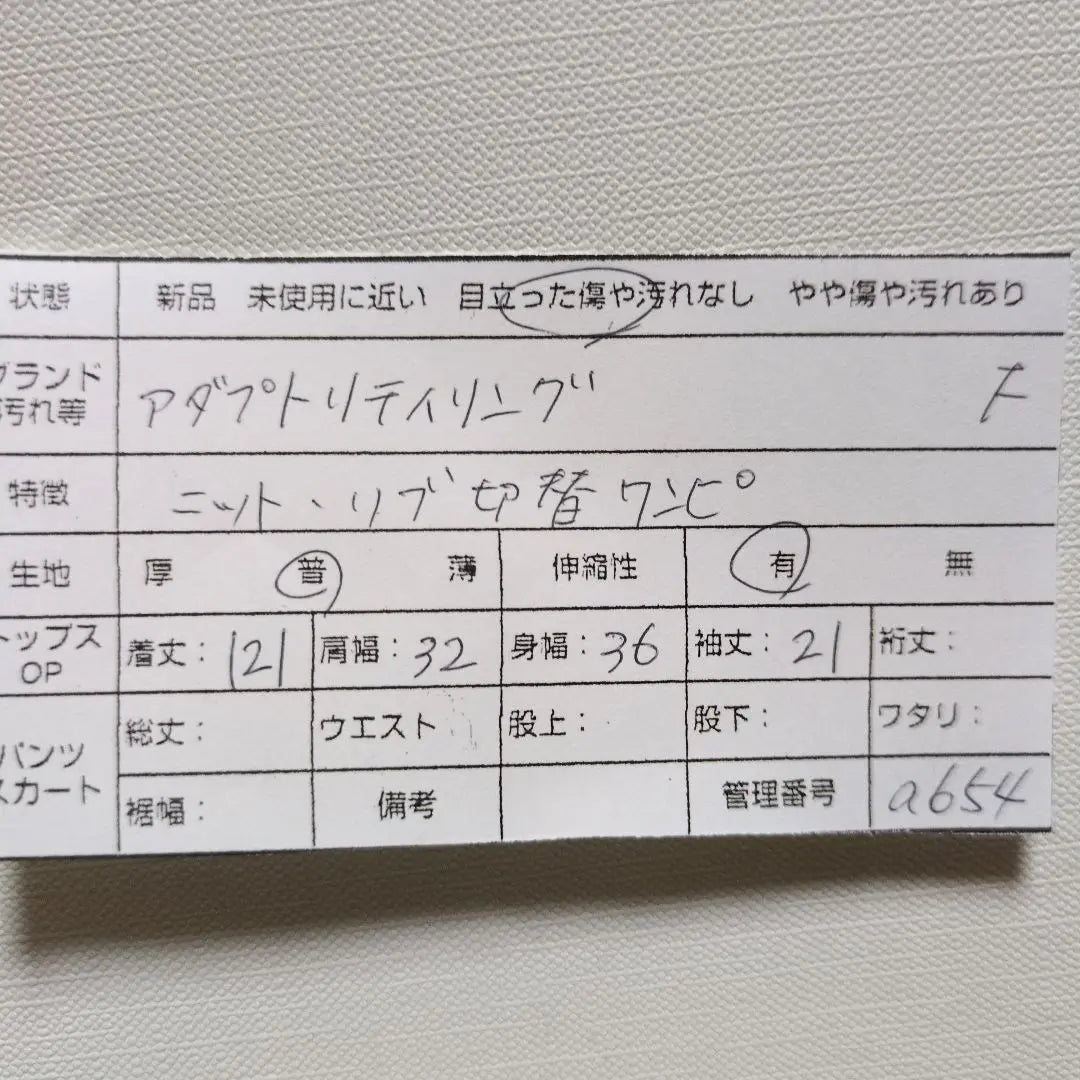 状態 新品 未使用に近い 目立った傷や汚れなし やや傷や汚れあり
ブランド アダプトリティイリング F
汚れ等
特徴 ニット・リブ切替ワンピ
生地 厚 普 薄 伸縮性 有 無
トップス
OP 着丈:121 肩幅:32 身幅:36 袖丈:21 裄丈:
パンツ 総丈: ウエスト 股上: 股下: ワタリ:
スカート 裾幅: 備考 管理番号 a654